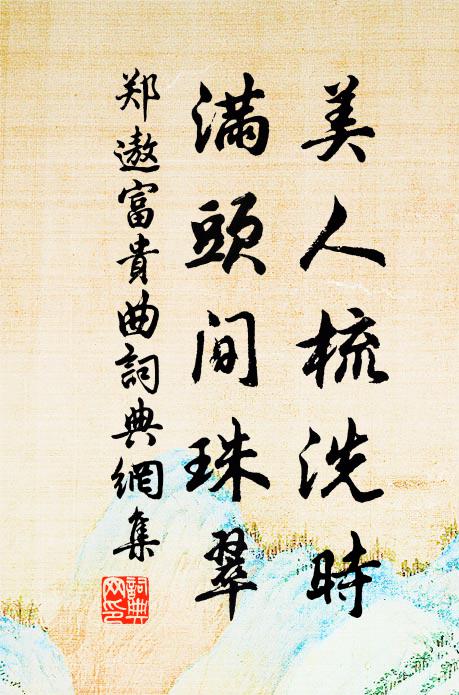 美人梳洗時
滿頭间珠翠
郑遨富貴曲詞典網集
詞典